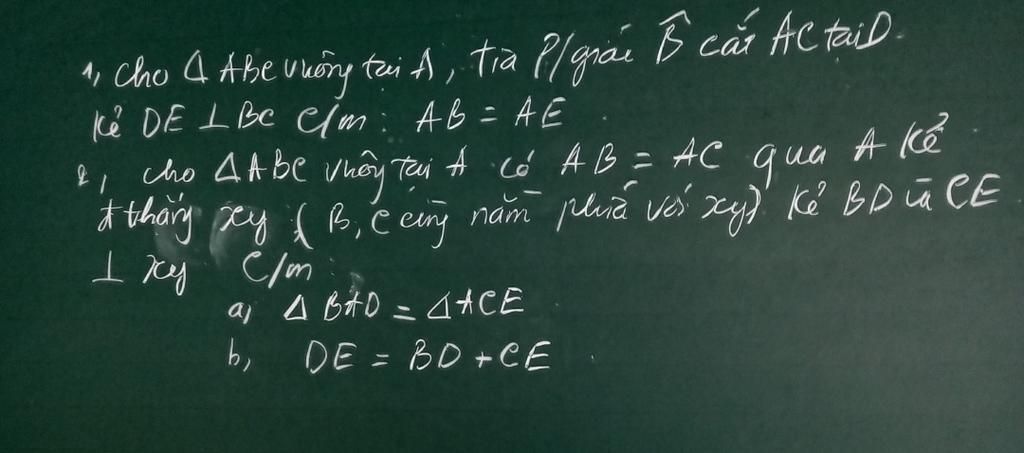 1, Cho Δ ABC vuông tại A, tia P/giác B̂ cắt AC tại D.
Kẻ DE ⊥ BC C/m: AB = AE.
2, cho ΔABC vuông tại A có AB = AC qua A kẻ
đ thẳng xy ( B, C cùng nằm phía với xy) kẻ BD và CE
⊥ xy C/m:
a, Δ BAD = ΔACE
b, DE = BD + CE.